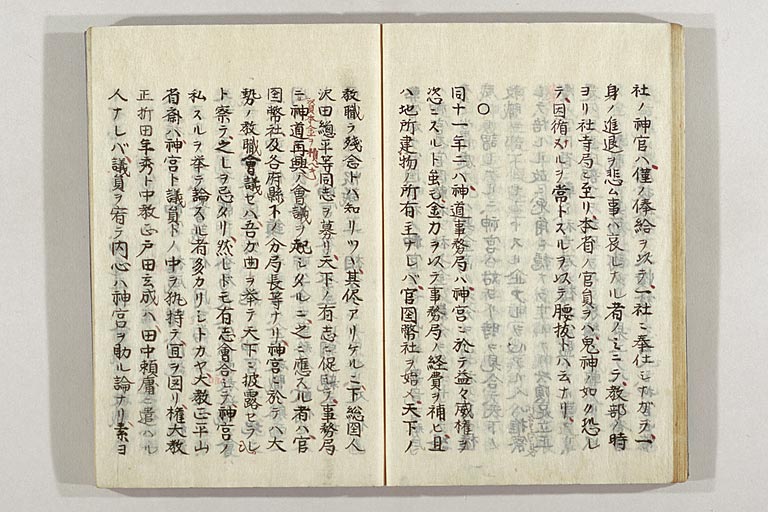 社ノ神官ハ僅ノ俸給ヲ以テ一社ニ奉仕シナガラ一
身ノ進退ヲ悲ム事ハ哀レナル者ノミニテ教部ノ時
ヨリ社寺局ニ至リ本省ノ官員ヲバ鬼神ノ如ク恐レ
テ因循スルヲ常トスルヲ以テ腰抜トハ云ナリ
〇
同十一年ニハ神道事務局ハ神宮ニ於テ益々威権ヲ
恣ニスルト虽モ金力ヲ以テ事務局ノ経費ヲ補ヒ且
ハ地所建物ノ所有主ナレバ官国幣社ヲ始メ天下ノ
教職ヲ残念トハ知リツヽ其侭アリケルニ下総国人
沢田総平等同志ヲ募リ天下ノ有志ニ促シ事務局
ニ神道再興ノ會議ヲ起シタルニ之ニ應スル者ハ官
国幣社及各府縣下ノ分局長等ナリ神宮ニ於テハ大
勢ノ教職會議セバ吾ガ曲ヲ挙テ天下ニ披露セラレ
ト察テ之レヲ忌タリ然レドモ有志會合シテ神宮ノ
私スルヲ挙テ論スル者多カリシトカヤ大教正平山
省斎ハ神宮ト議員トノ中ヲ執持テ宜ヲ図リ権大教
正折田年秀ト中教正戸田玄成ハ田中頼庸ノ遣ハル
人ナレバ議員ヲ宥テ内心ハ神宮ヲ助ル論ナリ素ヨ